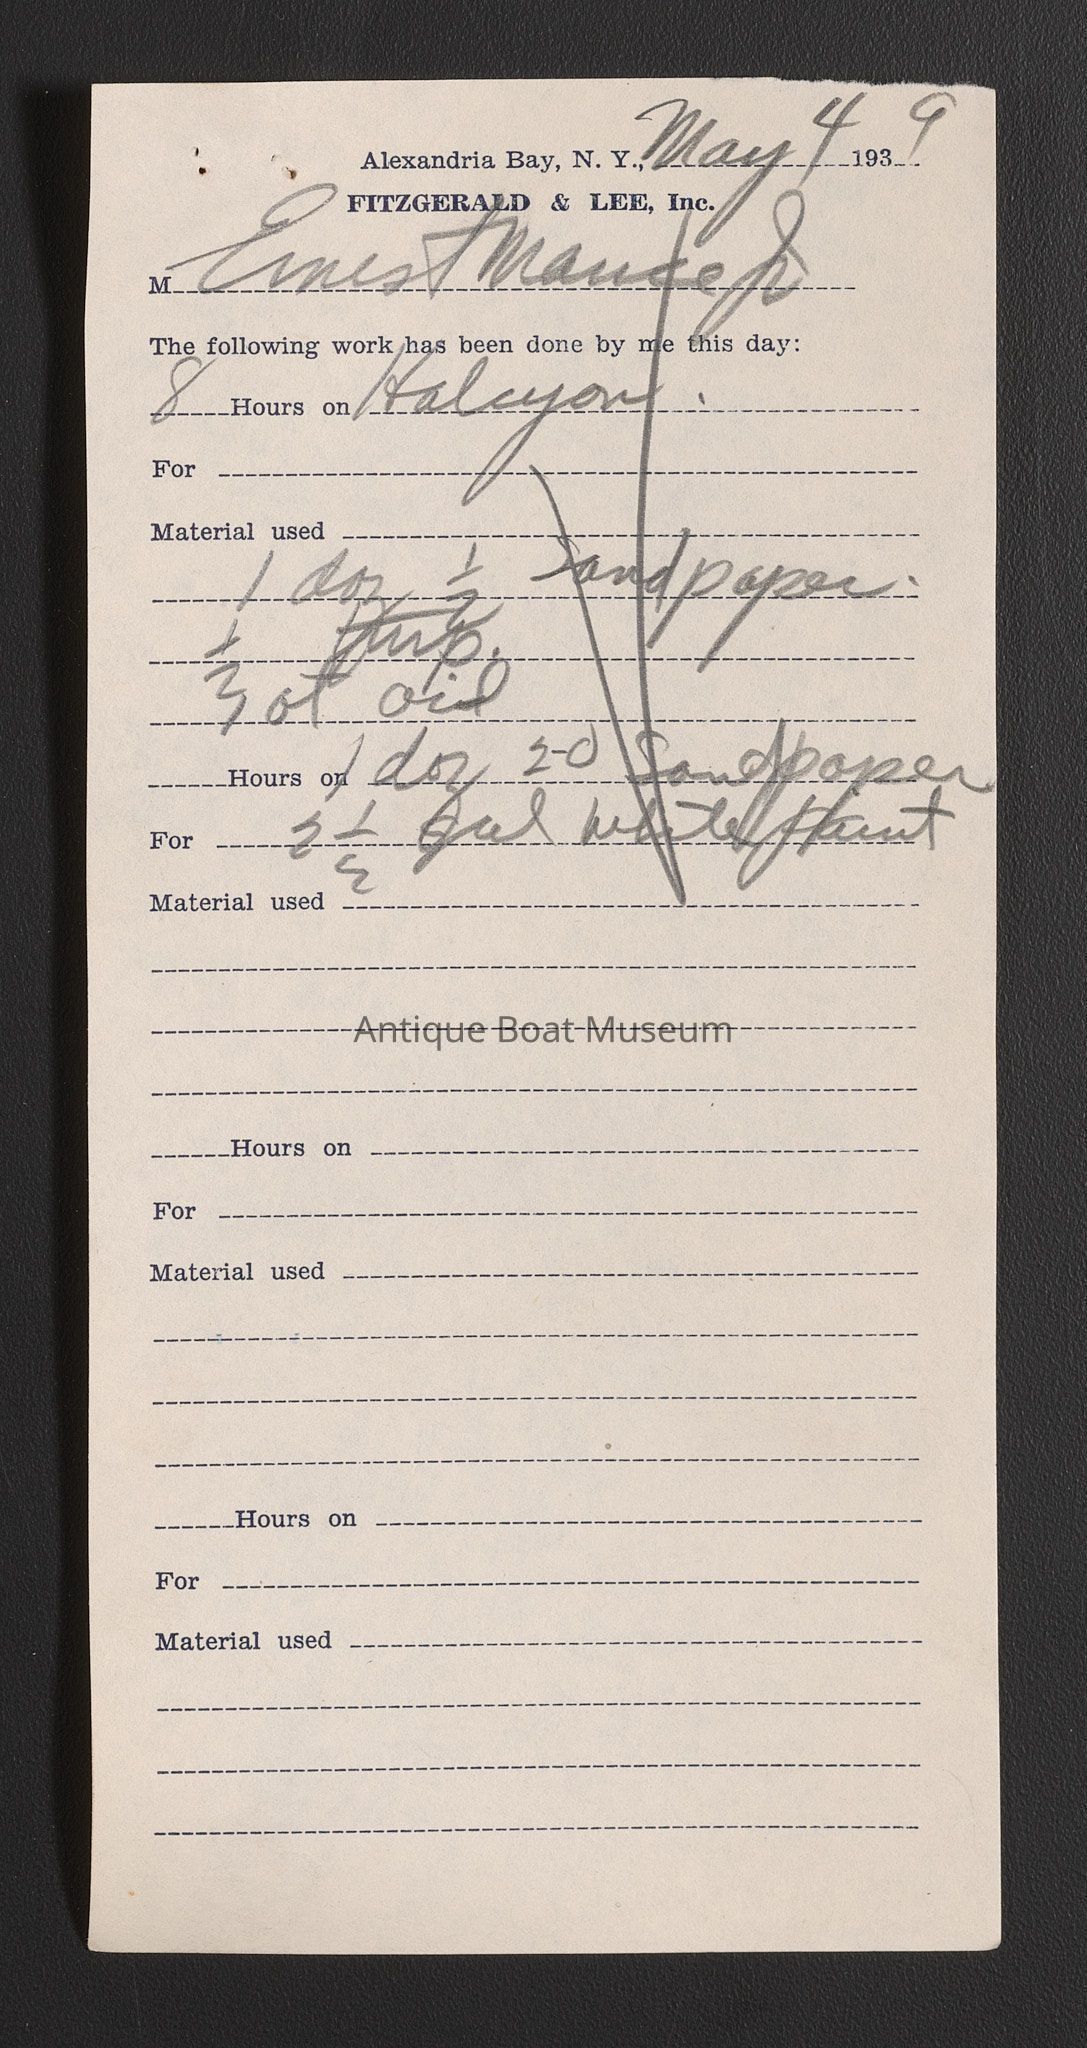 Alexandria Bay, N. Y., May 4 1939
FITZGERALD & LEE, Inc.
M Ernest Mance Jr
The following work has been done by me this day:
8 Hours on Halcyon.
For
Material used
1 doz 1/2 Sandpaper.
1/2 turp.
1/2 qt oil
Hours on 1 doz 2-0 Sandpaper
For 2 1/2 gal white Paint
Material used
Antique Boat Museum
Hours on
For
Material used
Hours on
For
Material used